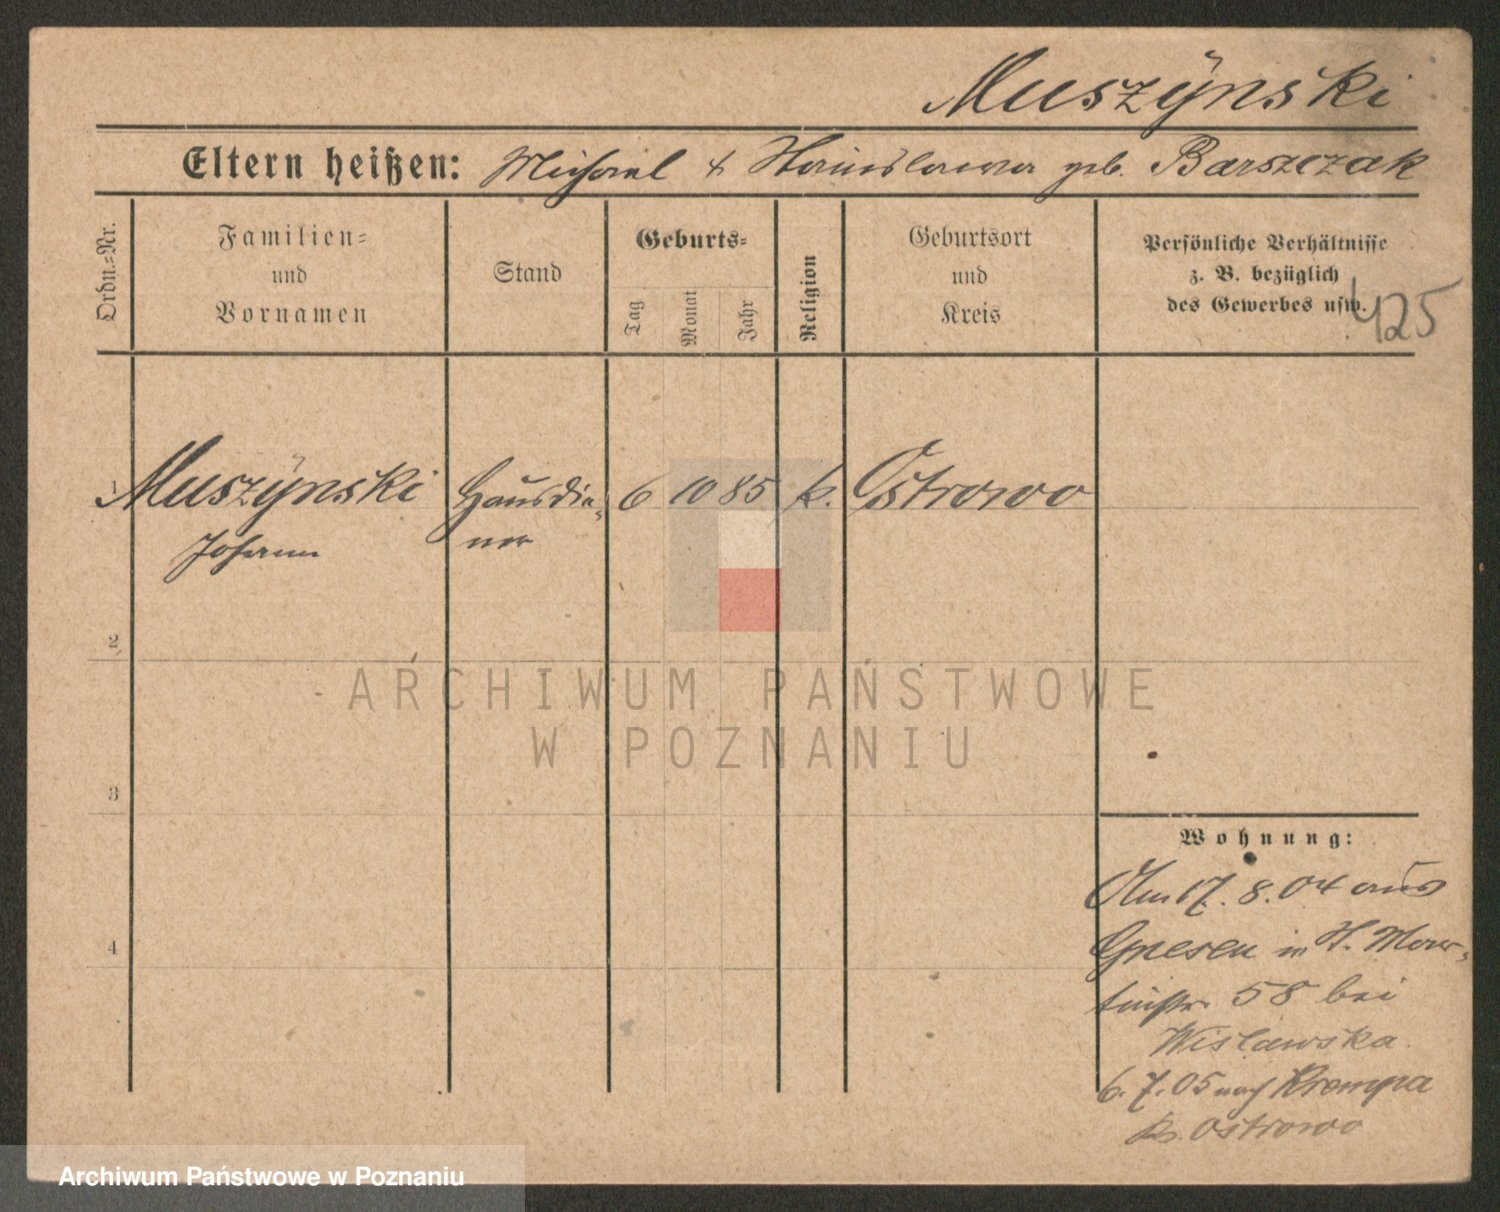 Muszÿnski
Eltern heißen: Michael & Stanislawa geb. Barszczak
Ordn.-Nr.
Familien-
und
Vornamen
Stand
Geburts-
Tag
Monat
Jahr
Religion
Geburtsort
und
Kreis
Persönliche Verhältnisse
z. B. bezüglich
des Gewerbes usw.
425
1 Muszÿnski Hausdie- 6 10 85 k. Ostrowo
Johann ner
2
3
4
Wohnung:
Am 17. 8. 04 aus
Gnesen in St. Mar-
tinstr. 58 bei
Wislawska
6. 7. 05 nach Krempa
Kr. Ostrowo
ARCHIWUM PAŃSTWOWE
W POZNANIU
Archiwum Państwowe w Poznaniu